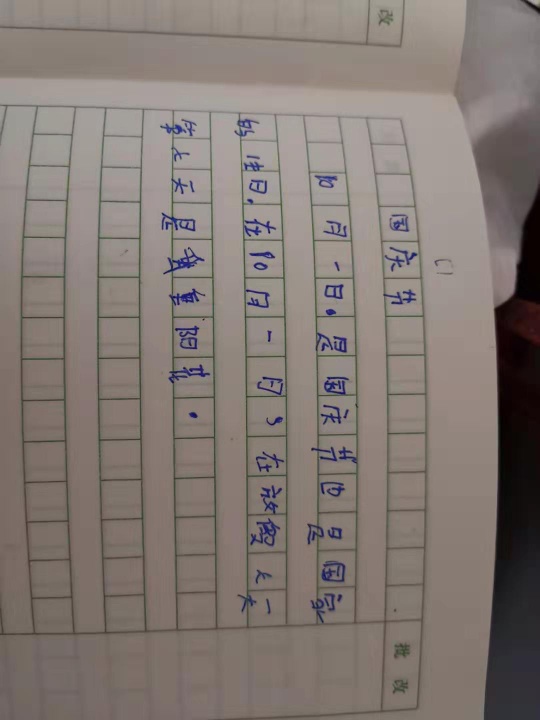 改
国庆节
10月一日。是国庆节日是国家
的生日。在10月一日，在放假七一天
第七天是重阳节。
批改